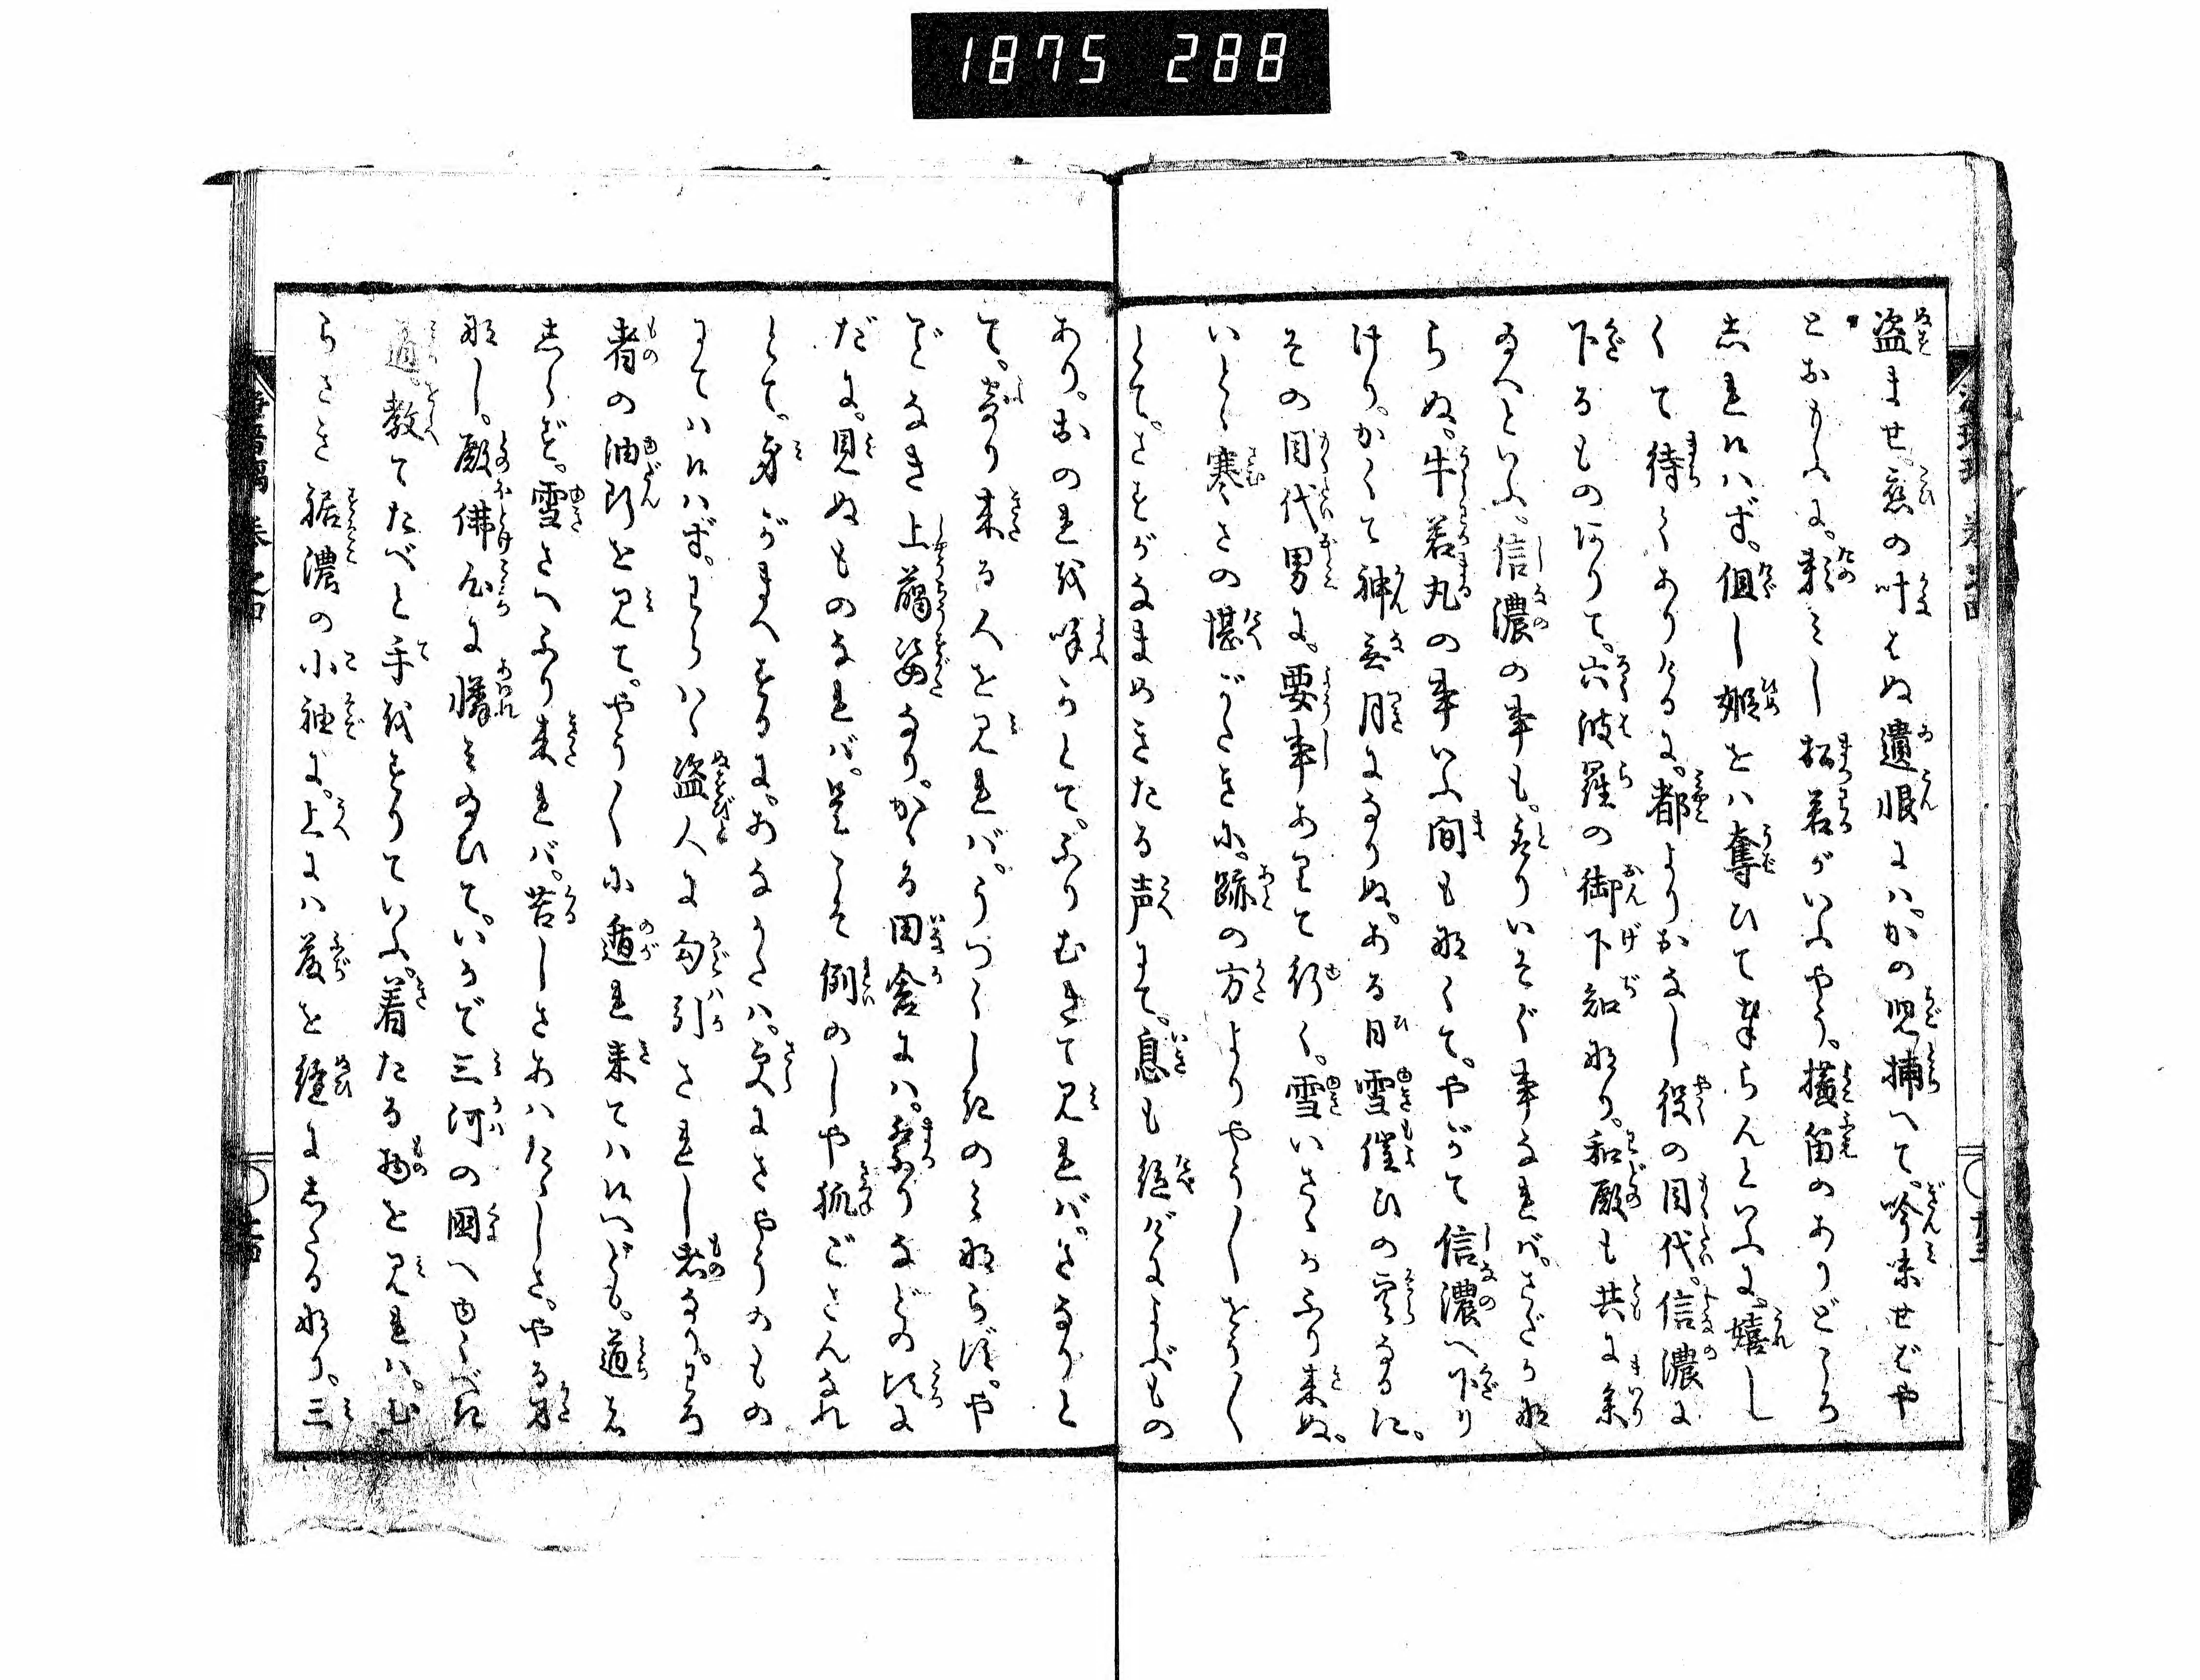 1875 288
盗ませ。恋の叶はぬ遺恨には。かの児捕へて。吟味せばや
とおもふに。頼みし松若がいふやう。横笛のありどころ
しれねバず。但し姫をハ奪ひて参らんといふに。嬉し
くて待しくありけるに。都よりおなし役の目代。信濃に
下るものありて。六波羅の御下知なり。和殿も共に参り
給へといふ。信濃の事も。とりいそぐ事なれば。さだかな
らぬ。牛若丸の事いふ間も なくて。やがて信濃へ下り
けり。かくて神無月になりぬ。ある日雪催ひの空なるに。
その目代男に。要事ありて行く。雪いさゝかふり来ぬ。
いとゞ寒さの堪がたきに。跡の方よりやう〳〵とほ〳〵
として。さもがなまめきたる声にて。息も絶だによぶもの
あり。おのれを呼かとて。ふりむきて見れバ。さなりと
て。寄り来る人を見れバ。うつくしきのみならず。や
ごなき上臈姿なり。かゝる田舎にハ。祭りなどの頃に
だに。見ぬものなれバ。是こそ例のしや狐ごさんなれ
とて。身がまへするに。あなかたハ。更にさやうのもの
にてハはべらず。わらハゝ盗人に勾引されし者なり。わろ
者の油断を見て。やう〳〵に遁れ来てハはべども。道も
しらず。雪さへふり来れバ。苦しさあハたゝしさ。やる方
なし。殿佛心に憐み給ひて。いかで三河の国へゆくべき
道。教てたべと手をすりていふ。着たる物を見れバ。む
らさき裾濃の小袖に。上にハ藤を縫にしたるなり。三